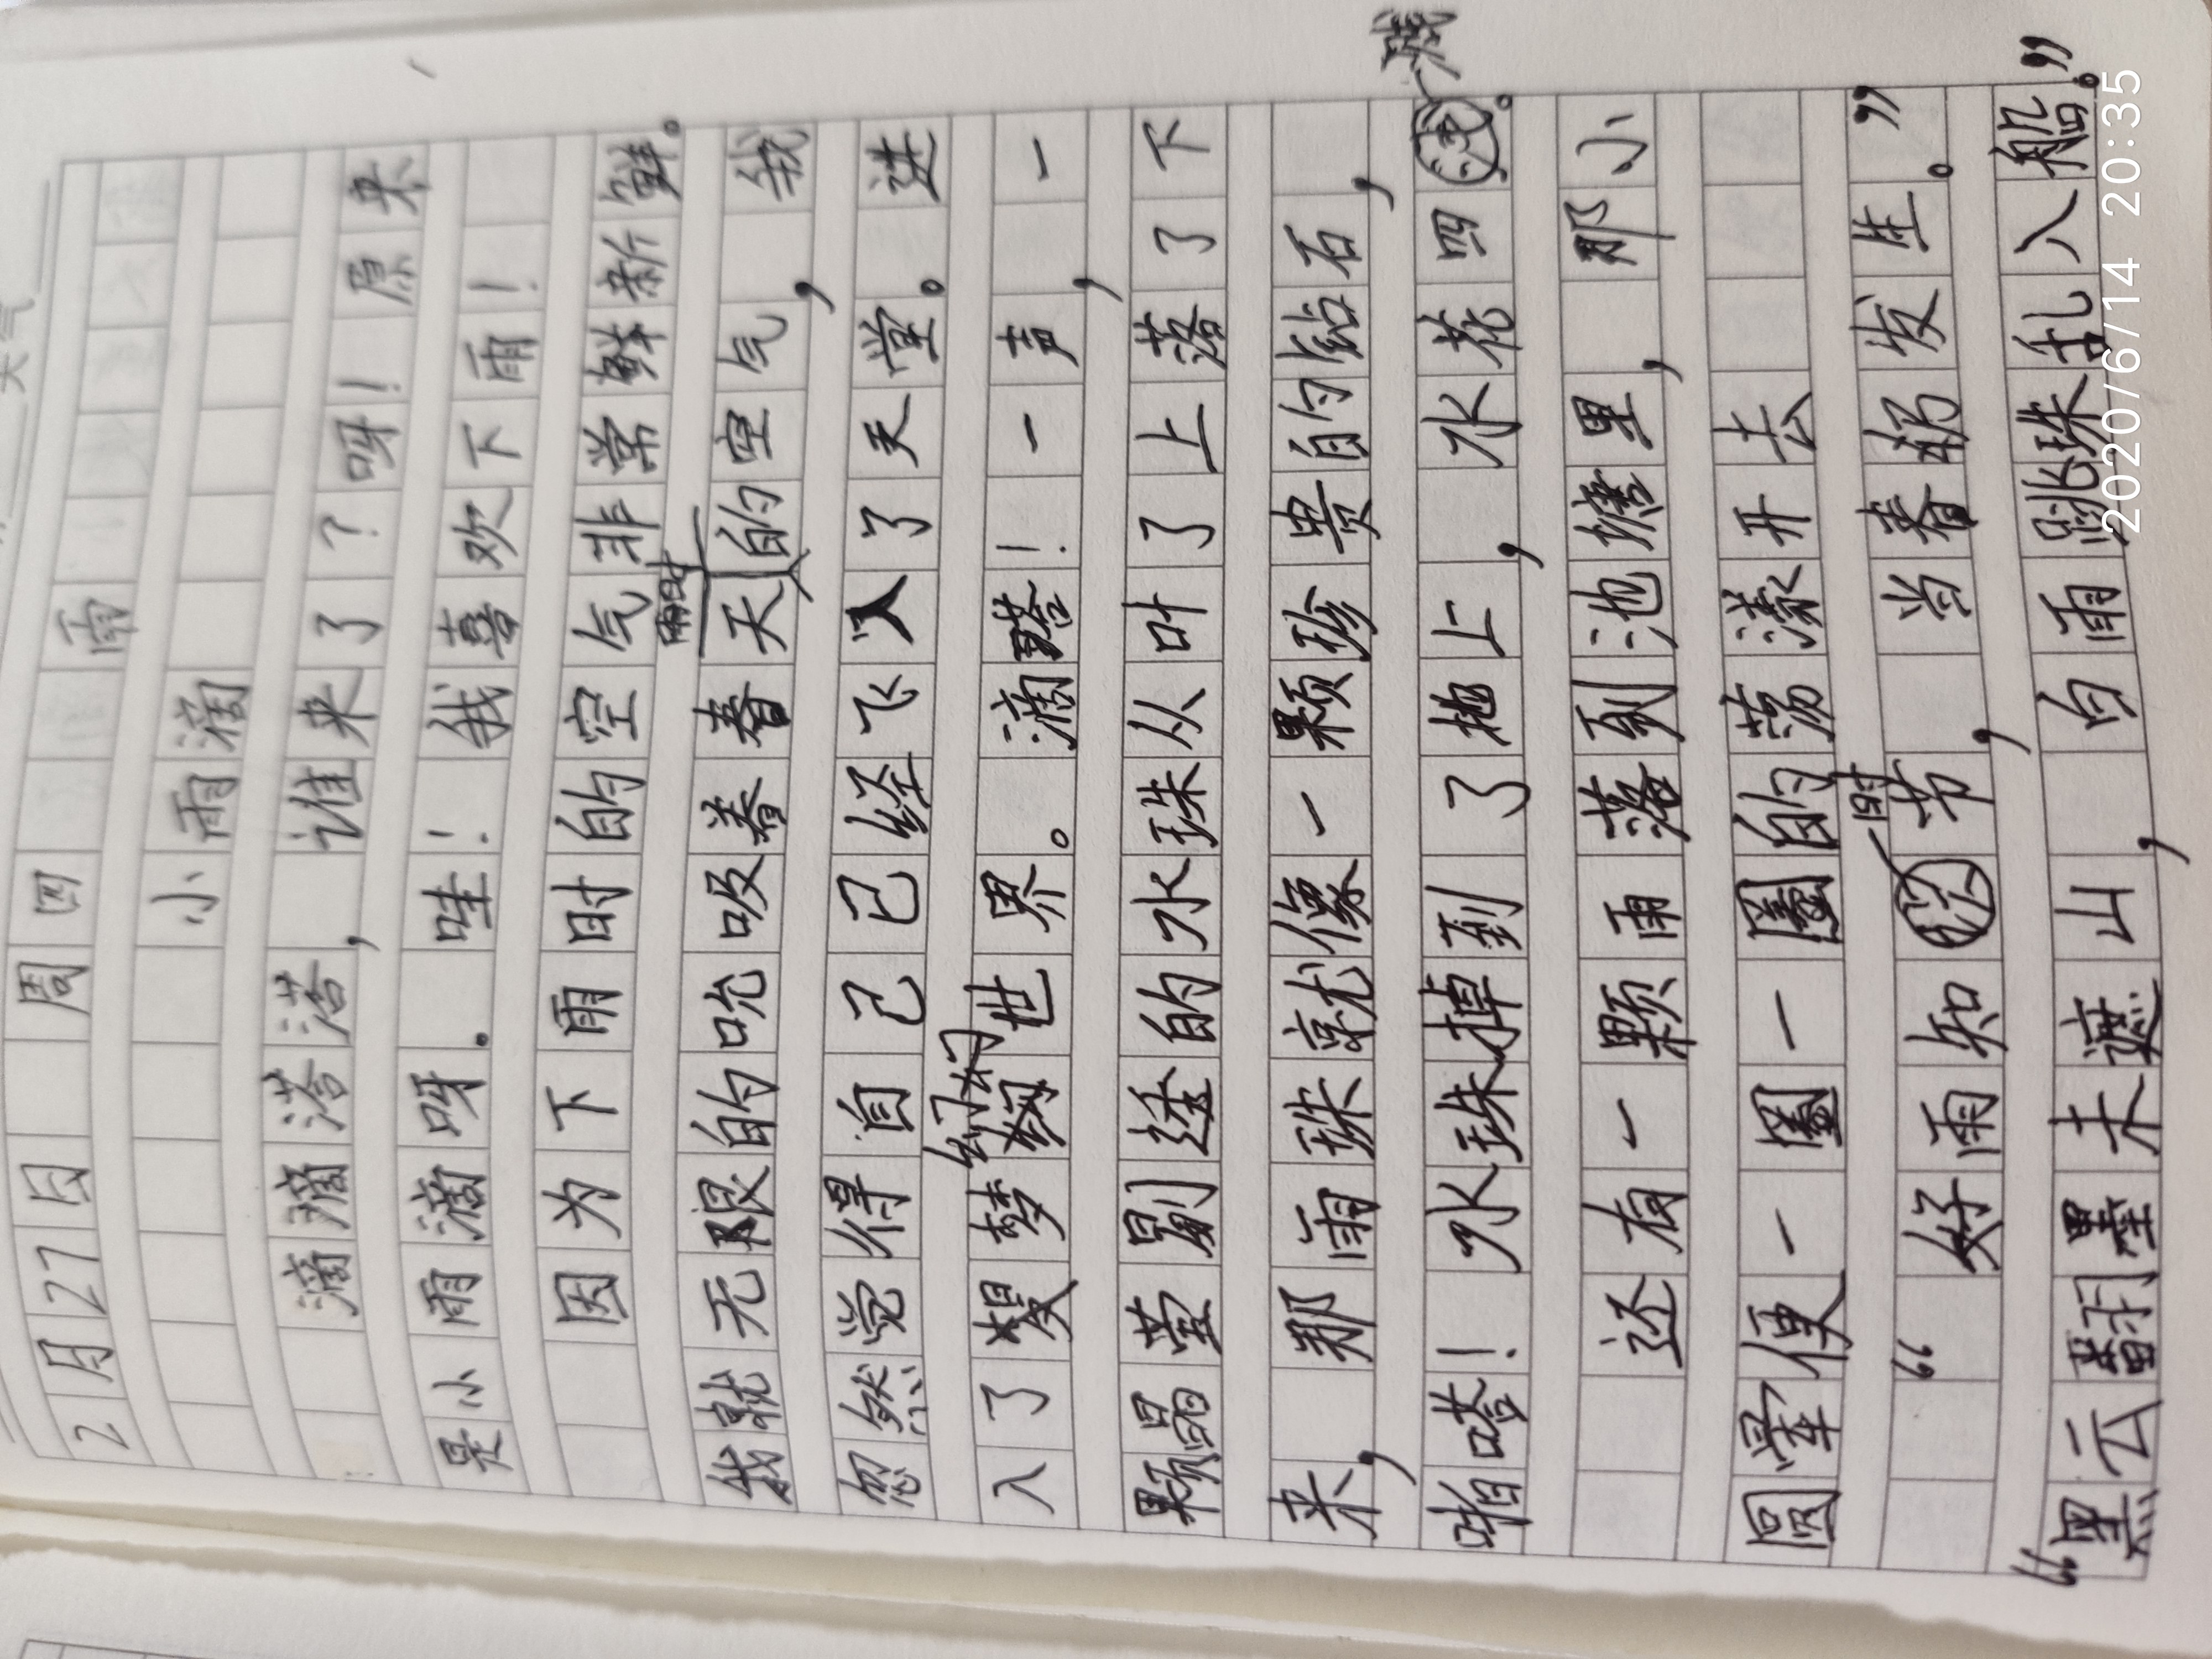 2月27日 周四 雨
小雨滴
滴滴溚溚，谁来了？呀！原来
是小雨滴呀。哇！我喜欢下雨！
因为下雨时的空气非常鲜新鲜。
我就无限的吮吸着春天雨时的空气，我
忽然觉得自己已经飞入了天堂。进
入了梦幻的世界。滴嗒！一声，一
颗晶莹剔透的水珠从叶了上落了下
来，那雨珠就像一颗珍贵的钻石，
啪嗒！水珠掉到了地上，水花四溅。
还有一颗雨落到池塘里，那小
圆晕便一圈一圈的荡漾开去
“好雨知时节，当春乃发生。”
“黑云翻墨未遮山，白雨跳珠乱入船。”
2020/6/14 20:35